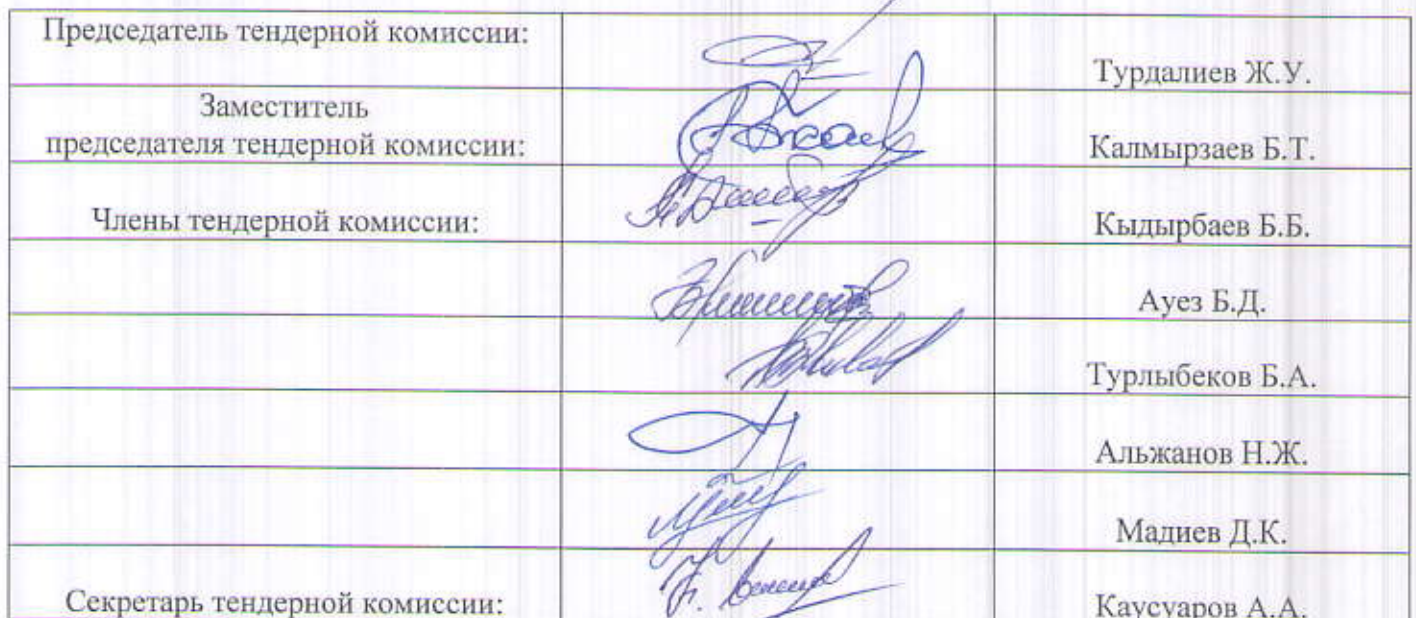 Председатель тендерной комиссии:
Турдалиев Ж.У.
Заместитель
председателя тендерной комиссии:
Калмырзаев Б.Т.
Члены тендерной комиссии:
Кыдырбаев Б.Б.
Ауез Б.Д.
Турлыбеков Б.А.
Альжанов Н.Ж.
Мадиев Д.К.
Секретарь тендерной комиссии:
Каусуаров А.А.